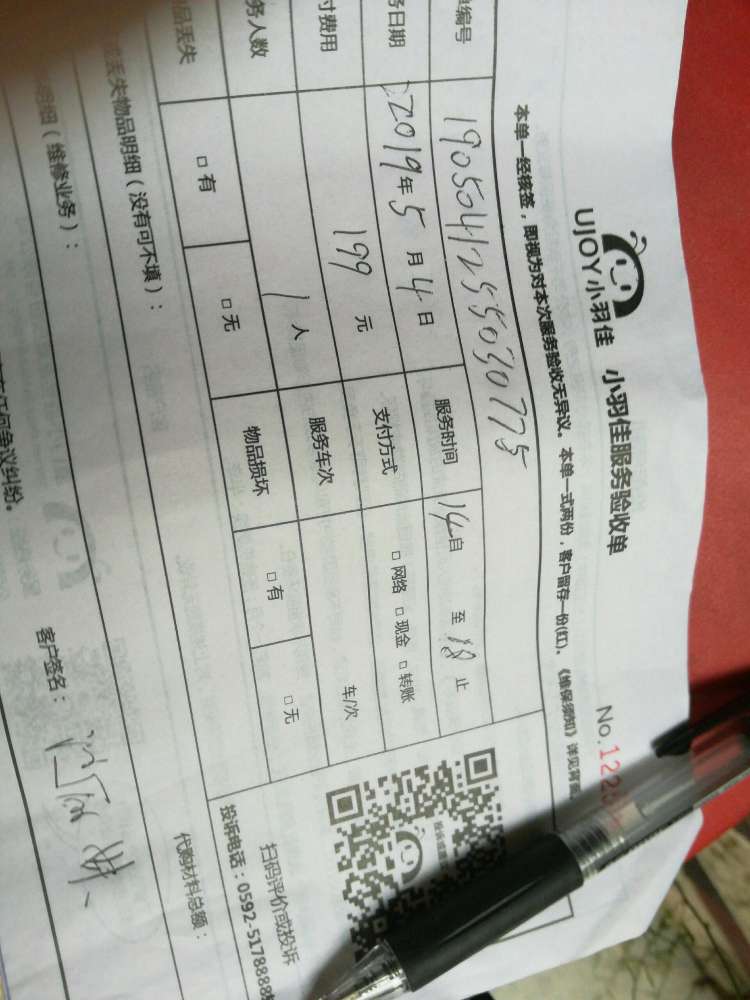 UJOY小羽佳 小羽佳服务验收单
No.122
本单一经核签，即视为对本次服务验收无异议。本单一式两份，客户留存一份(红)。《维保须知》详见背面
单编号 190504125503077 5
务日期 2019年5月4日 服务时间 14自 至18止
付费用 199元 支付方式 □网络 □现金 □转账
务人数 1人 服务车次 车/次
品丢失 □有 □无 物品损坏 □有 □无
扫码评价或投诉
投诉电话：0592-5178888
丢失物品明细（没有可不填）：
代购材料总额：
明细（维修业务）：
客户签名：
任何争议纠纷。